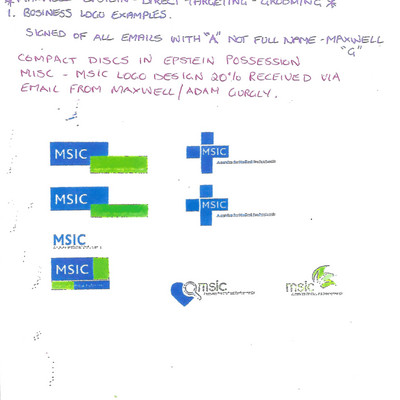 EPSTEIN - DIRECT TARGETING - GROOMING *
1. BUSINESS LOGO EXAMPLES.
SIGNED OF ALL EMAILS WITH "A" NOT FULL NAME - MAXWELL
"G"
COMPACT DISCS IN EPSTEIN POSSESSION
MISC - MSIC LOGO DESIGN 20% RECEIVED VIA
EMAIL FROM MAXWELL/ADAM
MSIC
MSIC
MSIC
MSIC
MSIC
MSIC
msic
msic